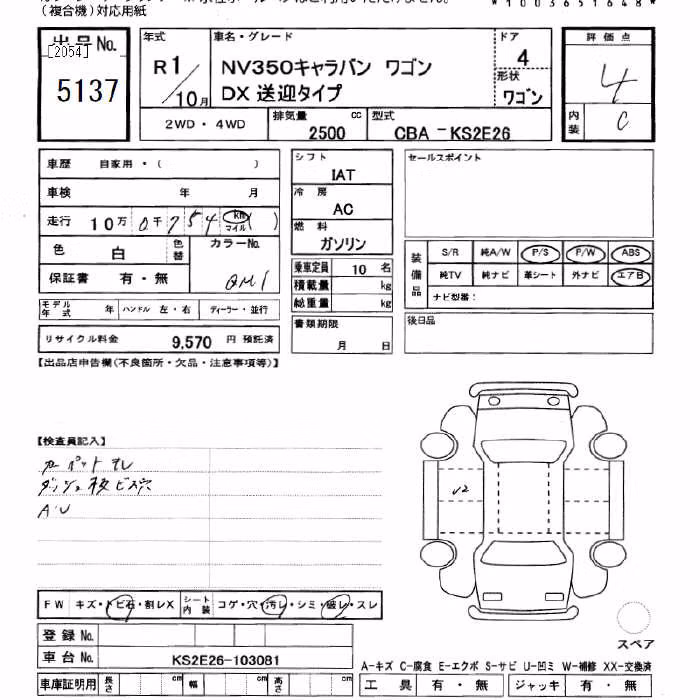 (複合機)対応用紙
*1003651648*
出品No.
[2054]
5137
年式
R1/10月
車名・グレード
NV350キャラバン ワゴン
DX 送迎タイプ
ドア
4
形状
ワゴン
2WD・4WD
排気量
2500
cc
型式
CBA-KS2E26
評価点
4
内装
C
車歴 自家用・( )
車検 年 月
走行 10万0千754 km マイル ( )
色 白 色替
カラーNo.
QM1
保証書 有・無
モデル年式 年 ハンドル 左・右 ディーラー・並行
リサイクル料金 9,570 円 預託済
シフト
IAT
冷房
AC
燃料
ガソリン
乗車定員 10 名
積載量 kg
総重量 kg
書類期限
月 日
セールスポイント
装備品
S/R 純A/W P/S P/W ABS
純TV 純ナビ 革シート 外ナビ エアB
ナビ型番:
後日品
【出品店申告欄(不良箇所・欠品・注意事項等)】
【検査員記入】
カーペットヨレ
ダッシュ枚ビス穴
AU
U2
FW キズ・トビ石・割レX シート内装 コゲ・穴・汚レ・シミ・破レ・スレ
登録No.
車台No. KS2E26-103081
車庫証明用 長さ cm 幅 cm 高さ cm
スペア
A-キズ C-腐食 E-エクボ S-サビ U-凹ミ W-補修 XX-交換済
工具 有・無 ジャッキ 有・無